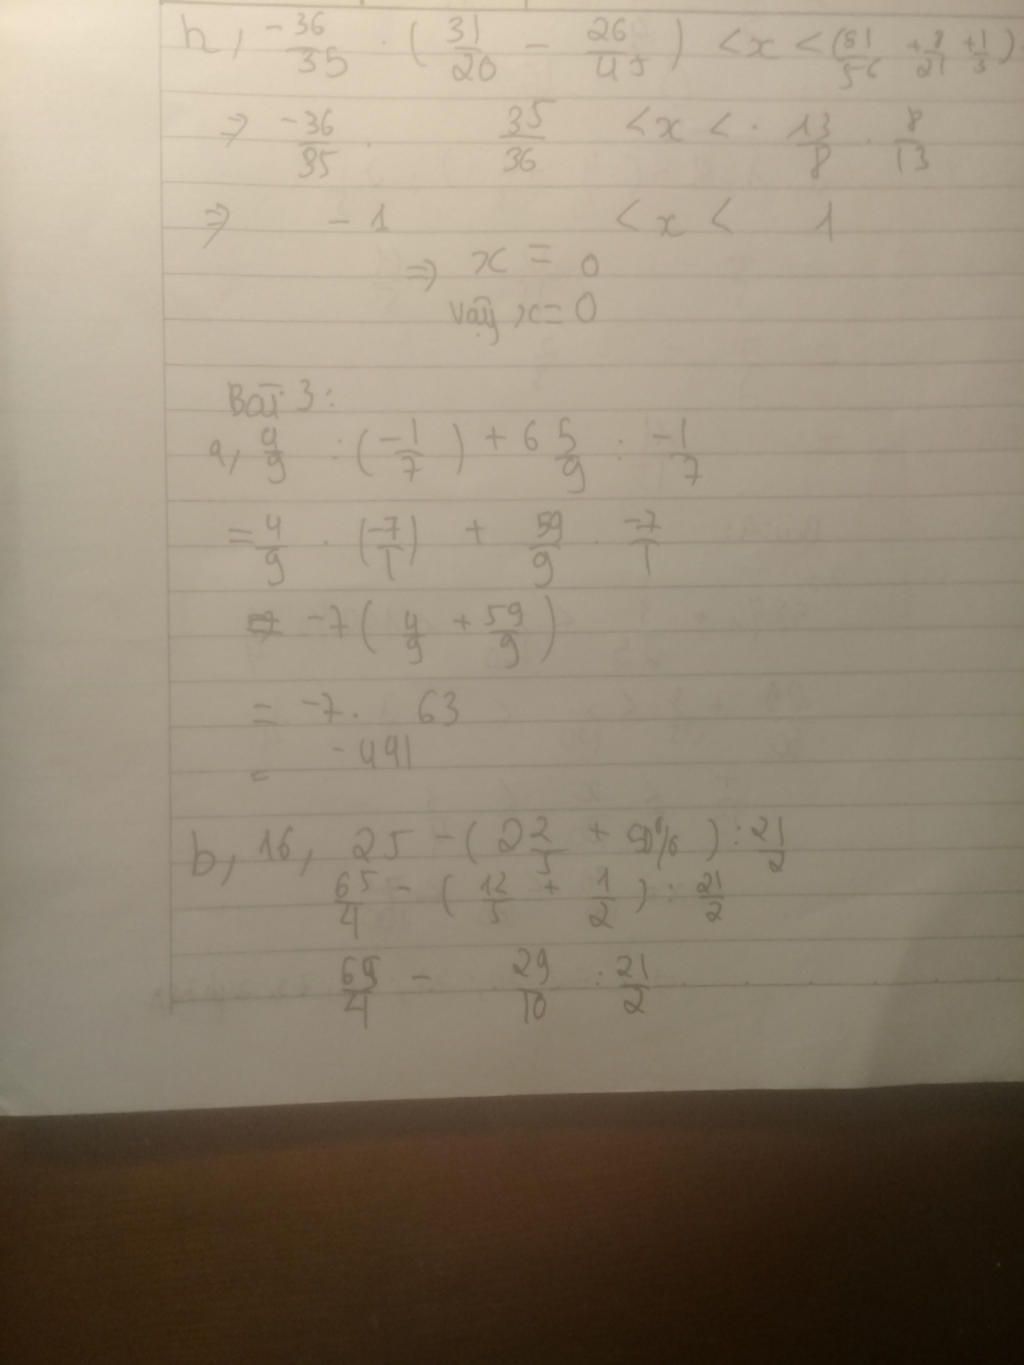 h, -36/35 . (31/20 - 26/45) < x < (51/56 + 8/21 + 1/3)
⇒ -36/35 . 35/36 < x < . 13/8 . 8/13
⇒ -1 < x < 1
⇒ x = 0
vậy x = 0
Bài 3:
a, 4/9 : (-1/7) + 6 5/9 : -1/7
= 4/9 . (-7/1) + 59/9 . -7/1
= -7 (4/9 + 59/9)
= -7 . 63
= -491
b, 16,25 - (2 2/5 + 50%) : 21/2
65/4 - (12/5 + 1/2) : 21/2
65/4 - 29/10 : 21/2